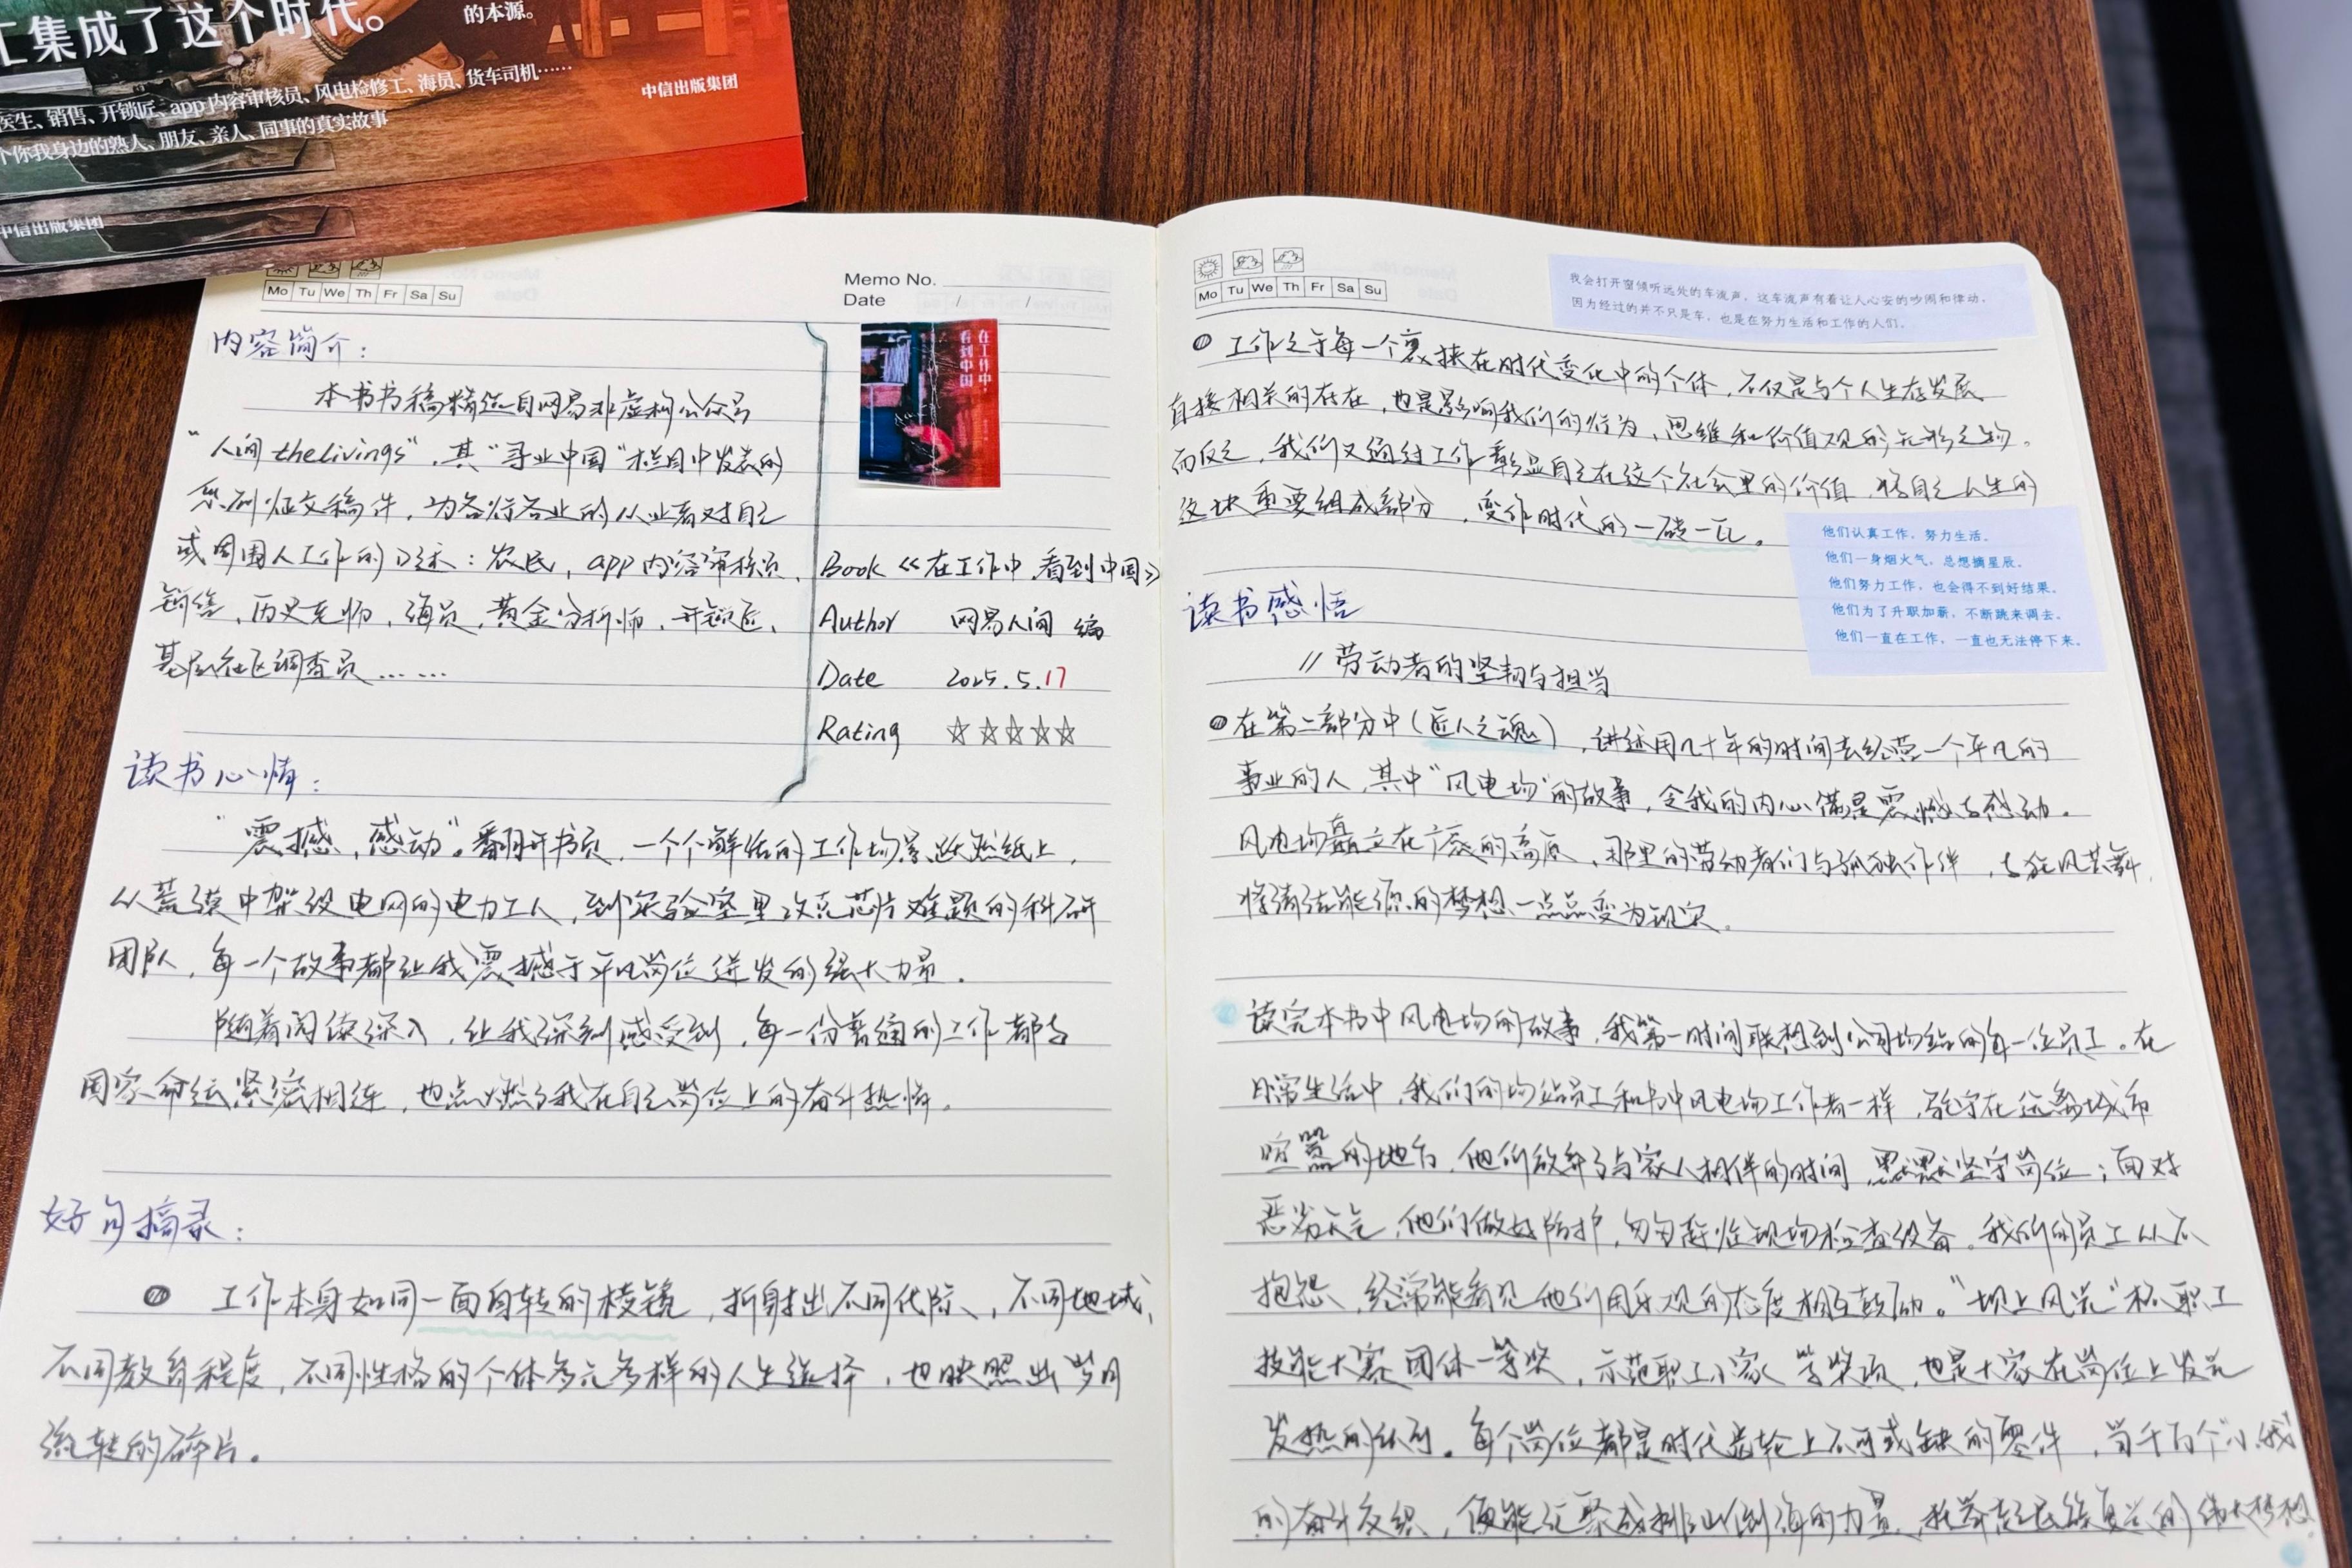 工集成了这个时代。
的本源。
医生、销售、开锁匠、app内容审核员、风电检修工、海员、货车司机……
个你我身边的熟人、朋友、亲人、同事的真实故事
中信出版集团
中信出版集团
Mo Tu We Th Fr Sa Su
Memo No.
Date / /
内容简介：
本书书稿精选自网易非虚构公众号
“人间thelivings”，其“寻业中国”栏目中发表的
系列征文稿件，为各行各业的从业者对自己
或周围人工作的口述：农民，app内容审核员、
销售、历史老师，海员，黄金分析师，开锁匠、
基层社区调查员……
在工作中，
看到中国
Book 《在工作中，看到中国》
Author 网易人间 编
Date 2025.5.17
Rating ☆☆☆☆☆
读书心情：
“震撼，感动”。翻开书页，一个个鲜活的工作场景跃然纸上，
从荒漠中架设电网的电力工人，到实验室里攻克芯片难题的科研
团队，每一个故事都让我震撼于平凡岗位迸发的强大力量．
随着阅读深入，让我深刻感受到，每一份普通的工作都与
国家命运紧密相连，也点燃了我在自己岗位上的奋斗热情。
好句摘录：
工作本身如同一面自转的棱镜，折射出不同代际、不同地域、
不同教育程度，不同性格的个体多元多样的人生选择，也映照出岁月
流转的碎片。
Mo Tu We Th Fr Sa Su
我会打开窗倾听远处的车流声，这车流声有着让人心安的吵闹和律动，
因为经过的并不只是车，也是在努力生活和工作的人们。
工作之于每一个裹挟在时代变化中的个体，不仅是与个人生存发展
直接相关的存在，也是影响我们的行为、思维和价值观的无形之物。
而反之，我们又通过工作彰显自己在这个社会里的价值，将自己人生的
这块重要组成部分，变作时代的一砖一瓦。
他们认真工作，努力生活。
他们一身烟火气，总想摘星辰。
他们努力工作，也会得不到好结果。
他们为了升职加薪，不断跳来调去。
他们一直在工作，一直也无法停下来。
读书感悟
// 劳动者的坚韧与担当
在第二部分中（匠人之魂），讲述用几十年的时间去经营一个平凡的
事业的人，其中“风电场”的故事，令我的内心满是震撼与感动．
风电场矗立在广袤的高原，那里的劳动者们与孤独作伴，与狂风共舞，
将清洁能源的梦想一点点变为现实．
读完本书中风电场的故事，我第一时间联想到公司场站的每一位员工。在
日常生活中，我们的场站员工和书中风电场工作者一样，驻守在远离城市
喧嚣的地方，他们放弃了与家人相伴的时间，默默坚守岗位；面对
恶劣天气，他们做好防护，匆匆赶往现场检查设备。我们的员工从不
抱怨，经常能看见他们用乐观的态度相互鼓励。“坝上风光”杯职工
技能大赛团体一等奖，示范职工小家 等奖项，也是大家在岗位上发光
发热的体现。每个岗位都是时代齿轮上不可或缺的零件，当千万个“小我”
的奋斗交织，便能汇聚成排山倒海的力量，托举起民族复兴的伟大梦想．